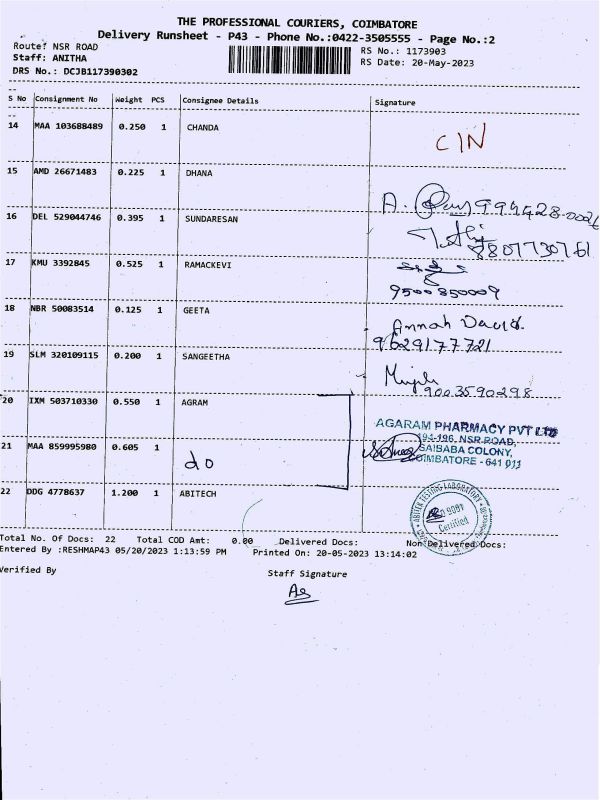 THE PROFESSIONAL COURIERS, COIMBATORE
Delivery Runsheet - P43 - Phone No.:0422-3505555 - Page No.:2
Route: NSR ROAD
RS No.: 1173903
Staff: ANITHA
RS Date: 20-May-2023
DRS No.: DCJB117390302
S No Consignment No Weight PCS Consignee Details Signature
14 MAA 103688489 0.250 1 CHANDA CIN
15 AMD 26671483 0.225 1 DHANA A.
16 DEL 529044746 0.395 1 SUNDARESAN 8807730761
17 KMU 3392845 0.525 1 RAMACKEVI
9500850009
18 NBR 50083514 0.125 1 GEETA Annah David.
9629177721
19 SLM 320109115 0.200 1 SANGEETHA
9003590298
20 IXM 503710330 0.550 1 AGRAM
AGARAM PHARMACY PVT LTD
194-196, NSR ROAD,
21 MAA 859995980 0.605 1 do SAIBABA COLONY,
COIMBATORE - 641 011
22 DDG 4778637 1.200 1 ABITECH
ABITEK TESTING LABORATORY
ISO 9001
Certified
Total No. Of Docs: 22 Total COD Amt: 0.00 Delivered Docs: Non Delivered Docs:
Entered By :RESHMAP43 05/20/2023 1:13:59 PM Printed On: 20-05-2023 13:14:02
Verified By
Staff Signature